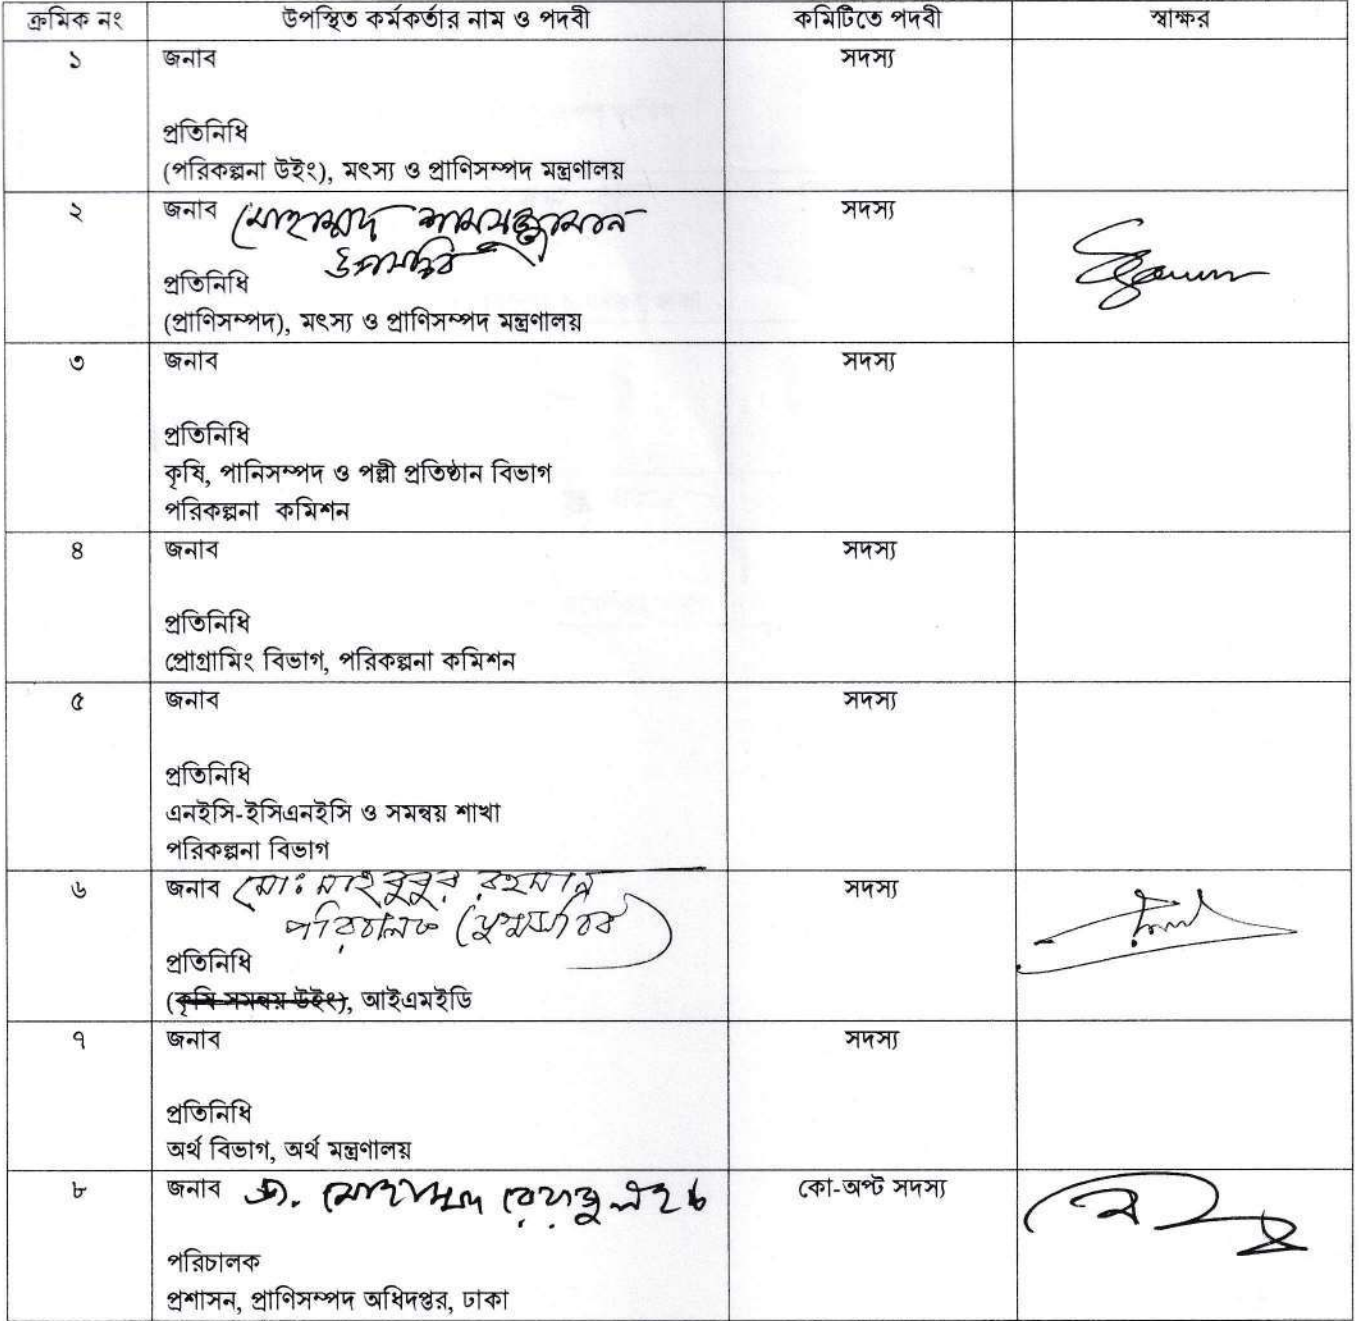 ক্রমিক নং উপস্থিত কর্মকর্তার নাম ও পদবী কমিটিতে পদবী স্বাক্ষর
১ জনাব সদস্য
প্রতিনিধি
(পরিকল্পনা উইং), মৎস্য ও প্রাণিসম্পদ মন্ত্রণালয়
২ জনাব মোহাম্মদ শামসুজ্জামান সদস্য
উপসচিব
প্রতিনিধি
(প্রাণিসম্পদ), মৎস্য ও প্রাণিসম্পদ মন্ত্রণালয়
৩ জনাব সদস্য
প্রতিনিধি
কৃষি, পানিসম্পদ ও পল্লী প্রতিষ্ঠান বিভাগ
পরিকল্পনা কমিশন
৪ জনাব সদস্য
প্রতিনিধি
প্রোগ্রামিং বিভাগ, পরিকল্পনা কমিশন
৫ জনাব সদস্য
প্রতিনিধি
এনইসি-ইসিএনইসি ও সমন্বয় শাখা
পরিকল্পনা বিভাগ
৬ জনাব মোঃ মাহবুবুর রহমান সদস্য
পরিচালক (যুগ্মসচিব)
প্রতিনিধি
(কৃষি সমন্বয় উইং), আইএমইডি
৭ জনাব সদস্য
প্রতিনিধি
অর্থ বিভাগ, অর্থ মন্ত্রণালয়
৮ জনাব ডা. মোহাম্মদ রেয়াজুল হক কো-অপ্ট সদস্য
পরিচালক
প্রশাসন, প্রাণিসম্পদ অধিদপ্তর, ঢাকা